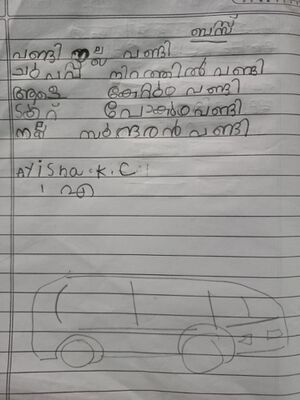 ബസ്
വണ്ടി നല്ല വണ്ടി
ചുവപ്പ് നിറത്തിൽ വണ്ടി
ആള് കേറും വണ്ടി
പോകും വണ്ടി
നല്ല സുന്ദരൻ വണ്ടി
Ayisha.K.C
1 എ